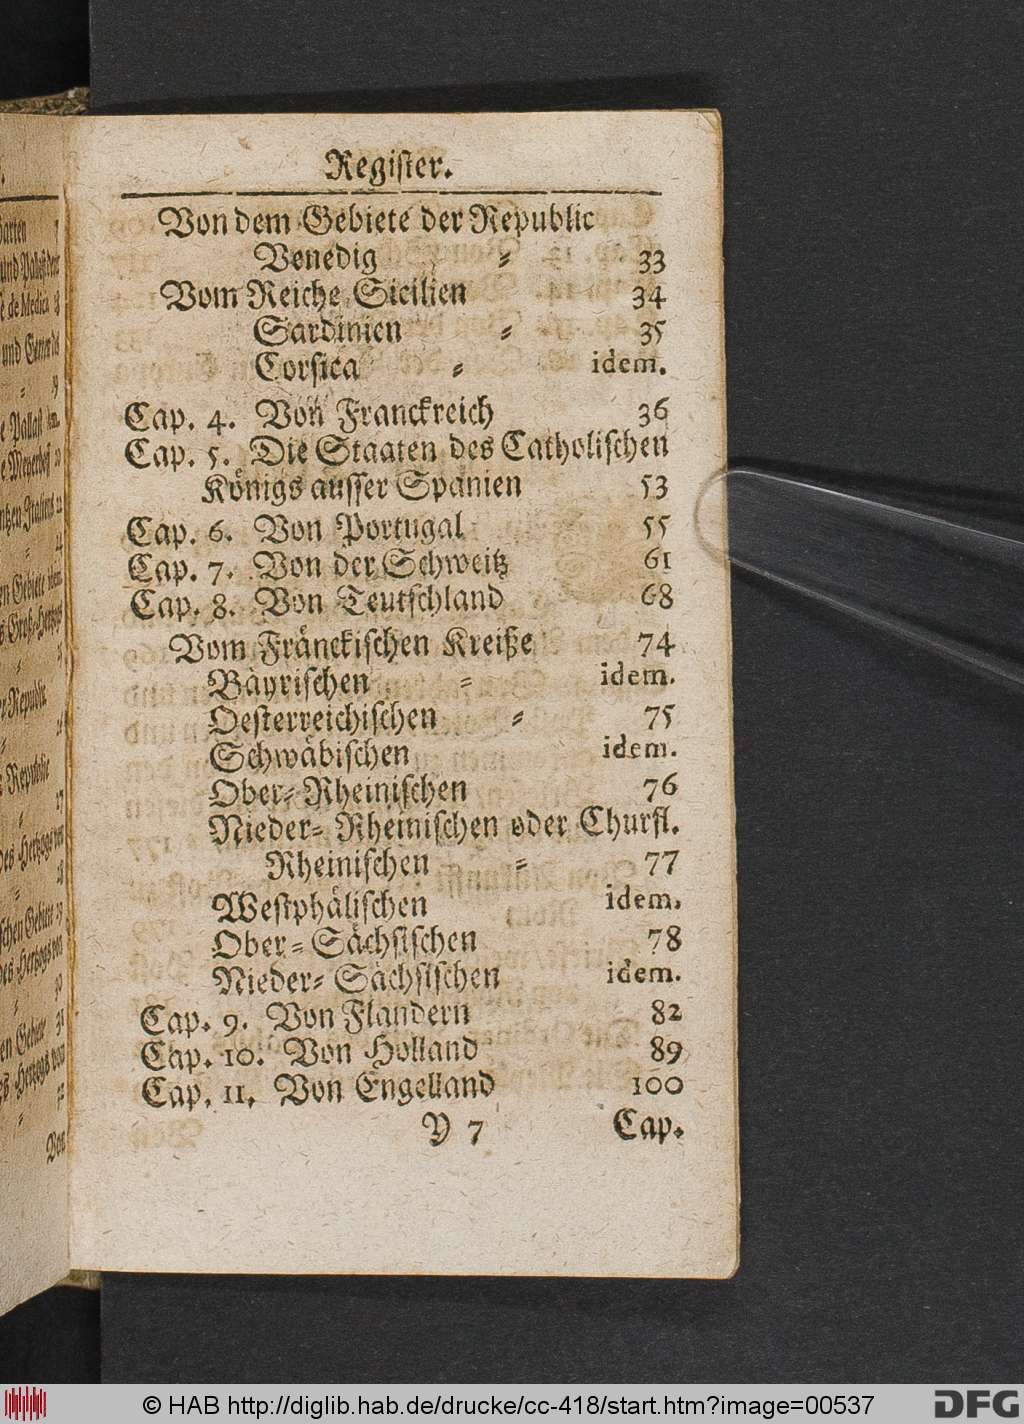 Register.
Von dem Gebiete der Republic
Venedig ⸗ 33
Vom Reiche Sicilien 34
Sardinien ⸗ 35
Corsica ⸗ idem.
Cap. 4. Von Franckreich 36
Cap. 5. Die Staaten des Catholischen
Königs ausser Spanien 53
Cap. 6. Von Portugal 55
Cap. 7. Von der Schweitz 61
Cap. 8. Von Teutschland 68
Vom Fränckischen Kreiße 74
Bäyrischen ⸗ idem.
Oesterreichischen ⸗ 75
Schwäbischen idem.
Ober⸗Rheinischen 76
Nieder⸗Rheinischen oder Churfl.
Rheinischen ⸗ 77
Westphälischen idem.
Ober⸗Sächsischen 78
Nieder⸗Sächsischen idem.
Cap. 9. Von Flandern 82
Cap. 10. Von Holland 89
Cap. 11. Von Engelland 100
Y 7 Cap.
© HAB http://diglib.hab.de/drucke/cc-418/start.htm?image=00537
DFG